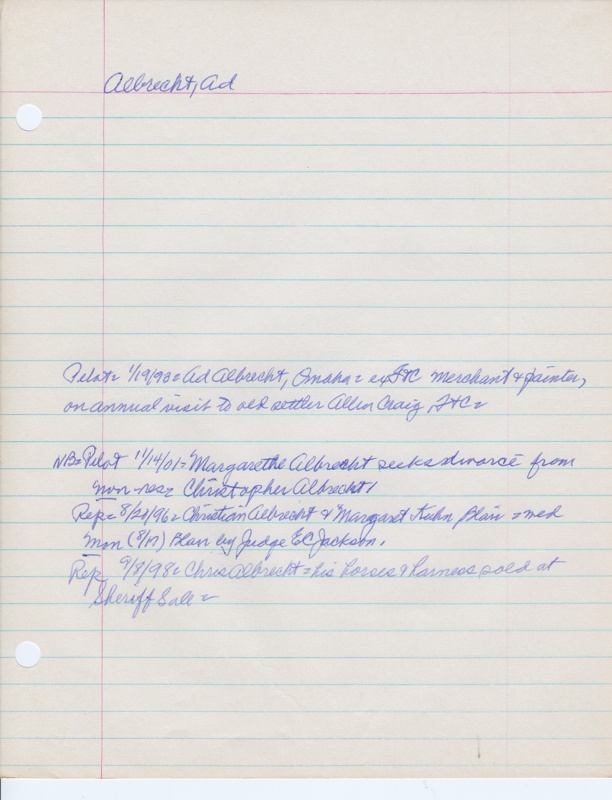 Albrecht, Ad
Pilot= 1/19/98= Ad Albrecht, Omaha= ex FtC merchant & painter,
on annual visit to old settler Allen Craig, FtC=
NB=Pilot 11/14/01= Margarethe Albrecht seeks divorce from
non-res= Christopher Albrecht/
Rep= 8/20/96= Christian Albrecht & Margaret Kuhn Blair = wed
Mon (8/17) Blair by Judge EC Jackson.
Rep 9/8/98= Chris Albrecht= his horses & harness sold at
Sheriff Sale=